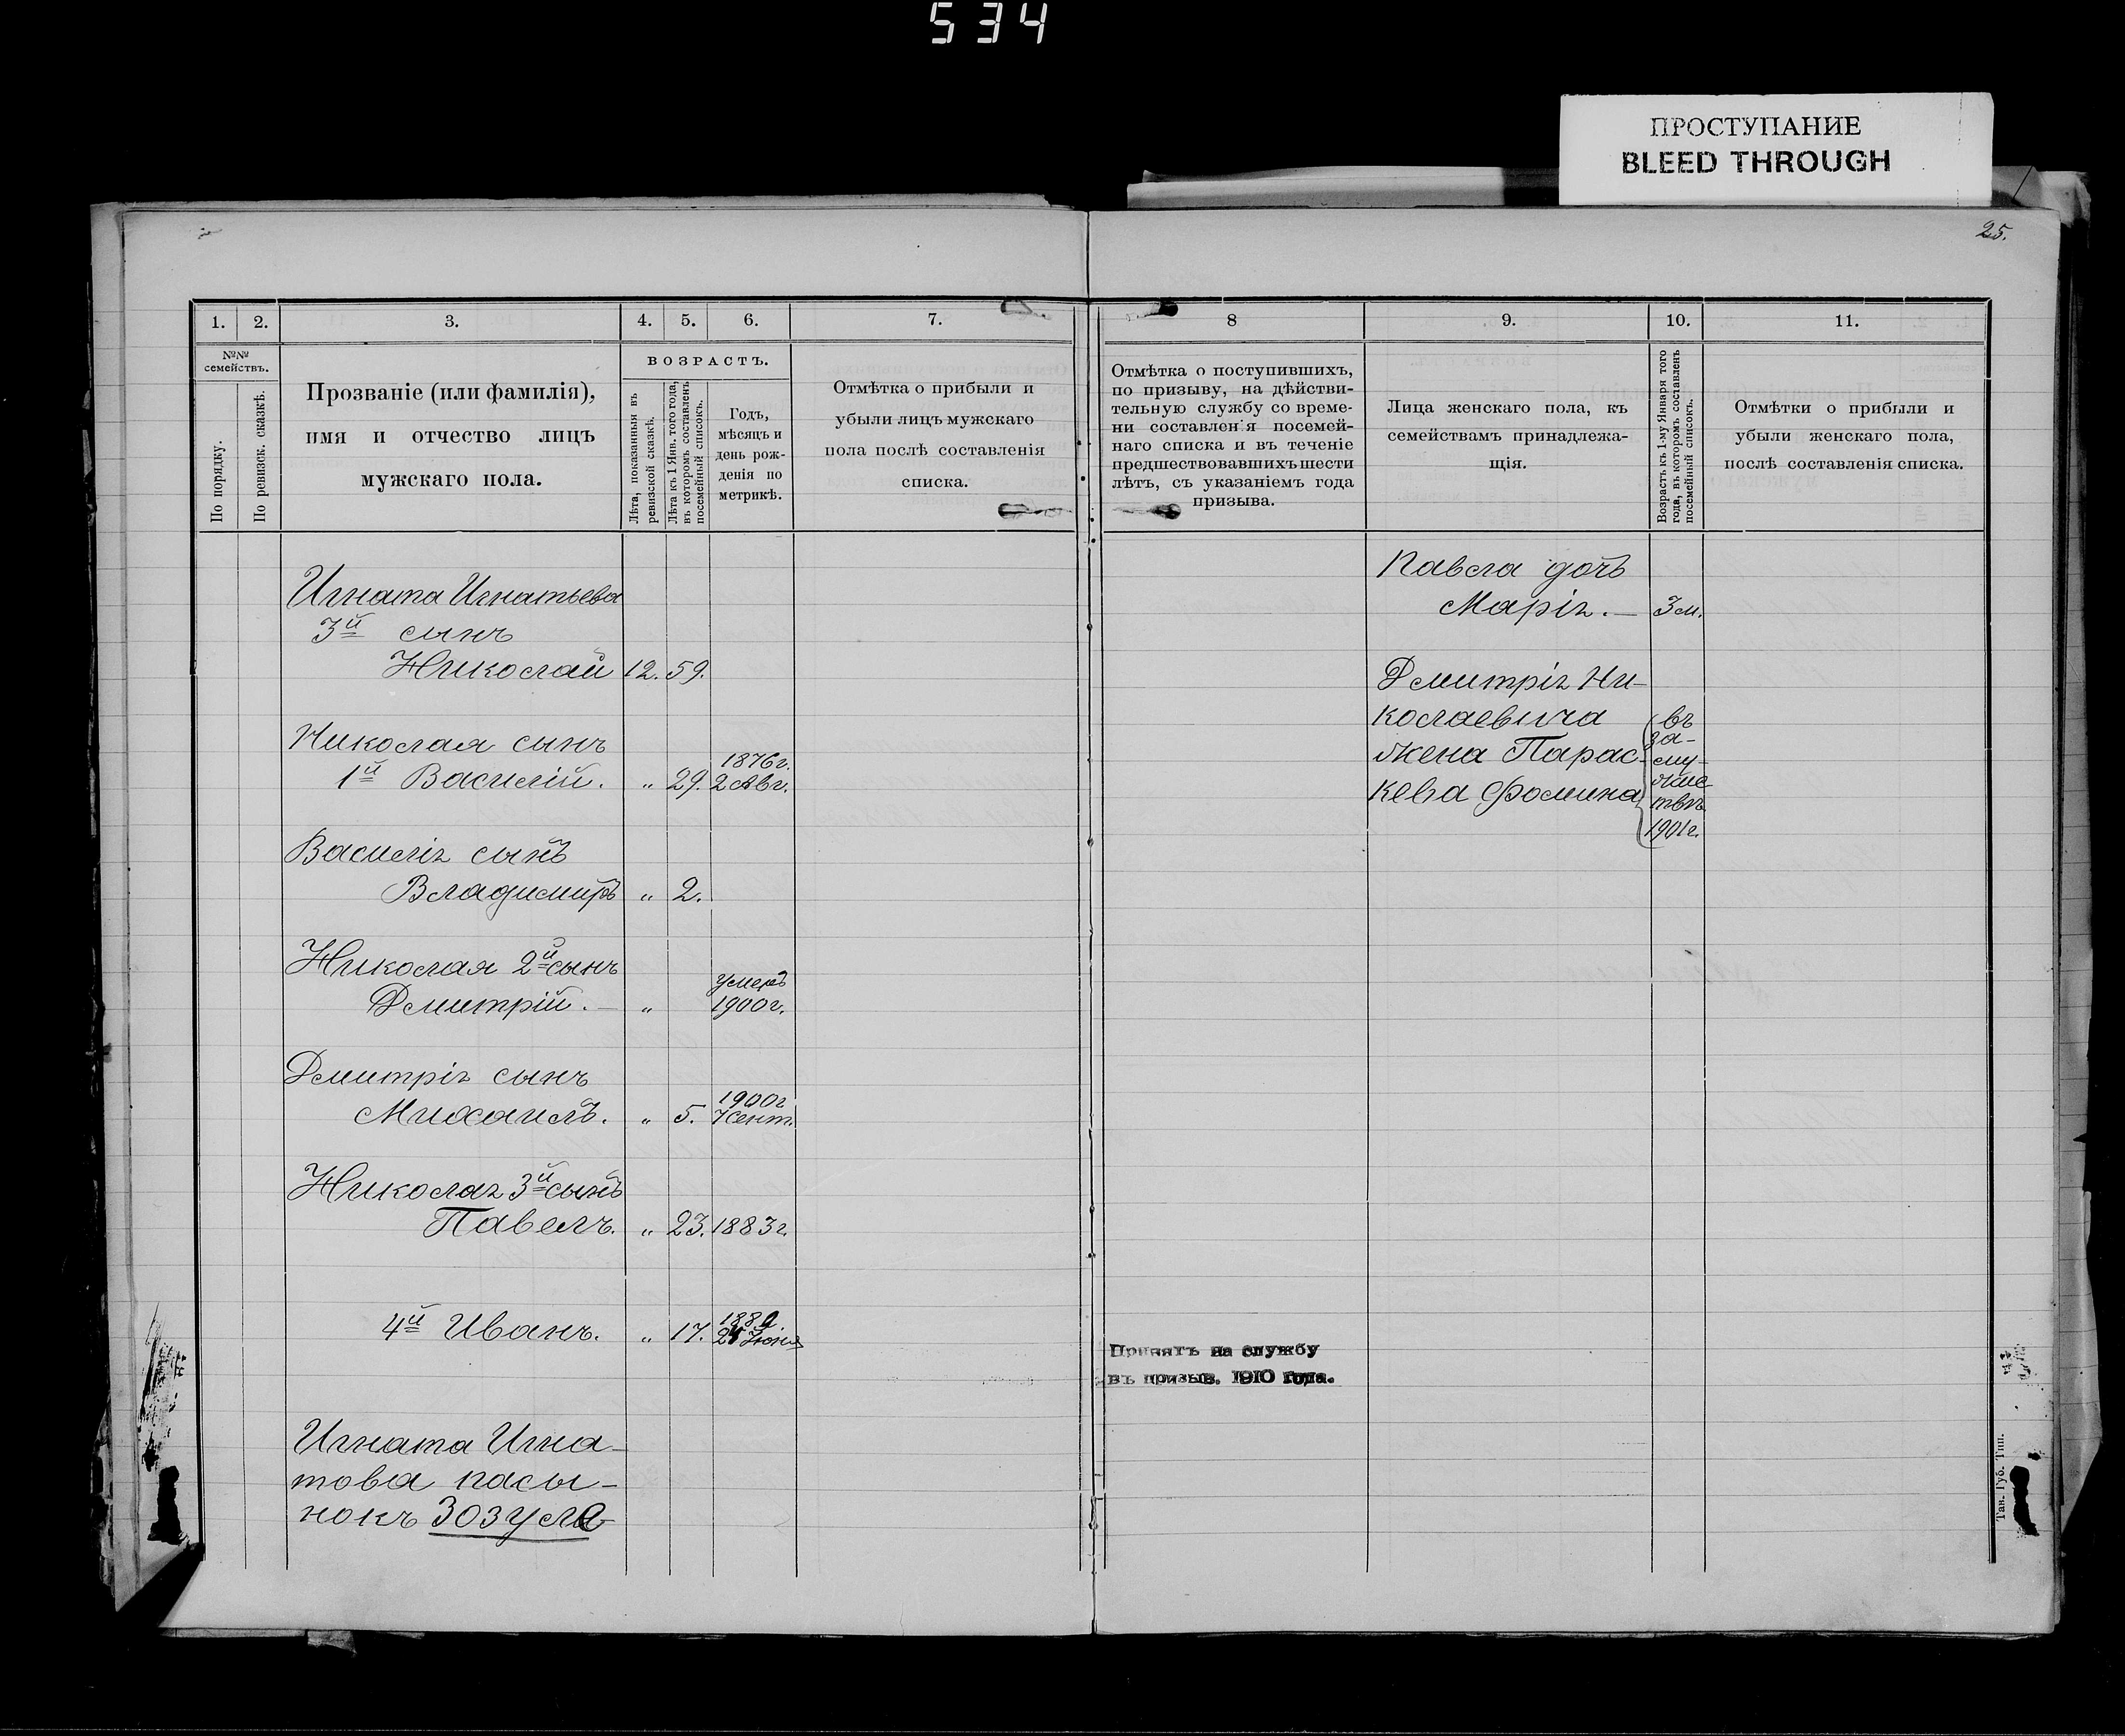 534
ПРОСТУПАНИЕ
BLEED THROUGH
25.
1.
2.
3.
4.
5.
6.
7.
№№
семействъ.
По порядку.
По ревизск. сказкѣ.
Прозваніе (или фамилія),
имя и отчество лицъ
мужскаго пола.
ВОЗРАСТЪ.
Лѣта, показанныя въ
ревизской сказкѣ.
Лѣта къ 1 Янв. того года,
въ которомъ составленъ
посемейный списокъ.
Годъ,
мѣсяцъ и
день рож-
денія по
метрикѣ.
Отмѣтка о прибыли и
убыли лицъ мужскаго
пола послѣ составленія
списка.
Игната Игнатьева
3й сынъ
Николай 12. 59.
Николая сынъ
1й Василій. " 29. 1876г. 2 Авг.
Василія сынъ
Владимиръ " 2.
Николая 2й сынъ
Дмитрій. — " умеръ 1900г.
Дмитрія сынъ
Михаилъ. " 5. 1900г 7 Сент.
Николая 3й сынъ
Павелъ. " 23. 1883г.
4й Иванъ. " 17. 1889 Іюня
Игната Игна-
това пасы-
нокъ Зозуля
8
9.
10.
11.
Отмѣтка о поступившихъ,
по призыву, на дѣйстви-
тельную службу со време-
ни составленія посемей-
наго списка и въ теченіе
предшествовавшихъ шести
лѣтъ, съ указаніемъ года
призыва.
Лица женскаго пола, къ
семействамъ принадлежа-
щія.
Возрастъ къ 1-му Января того
года, въ которомъ составленъ
посемейный списокъ.
Отмѣтки о прибыли и
убыли женскаго пола,
послѣ составленія списка.
Павла дочь
Марія. — 3 м.
Дмитрія Ни-
колаевича
жена Парас-
кева Фомина
въ
за-
му-
жес
твѣ
1901г.
Принятъ на службу
въ призыв. 1910 года.
Тав. Губ. Тип.